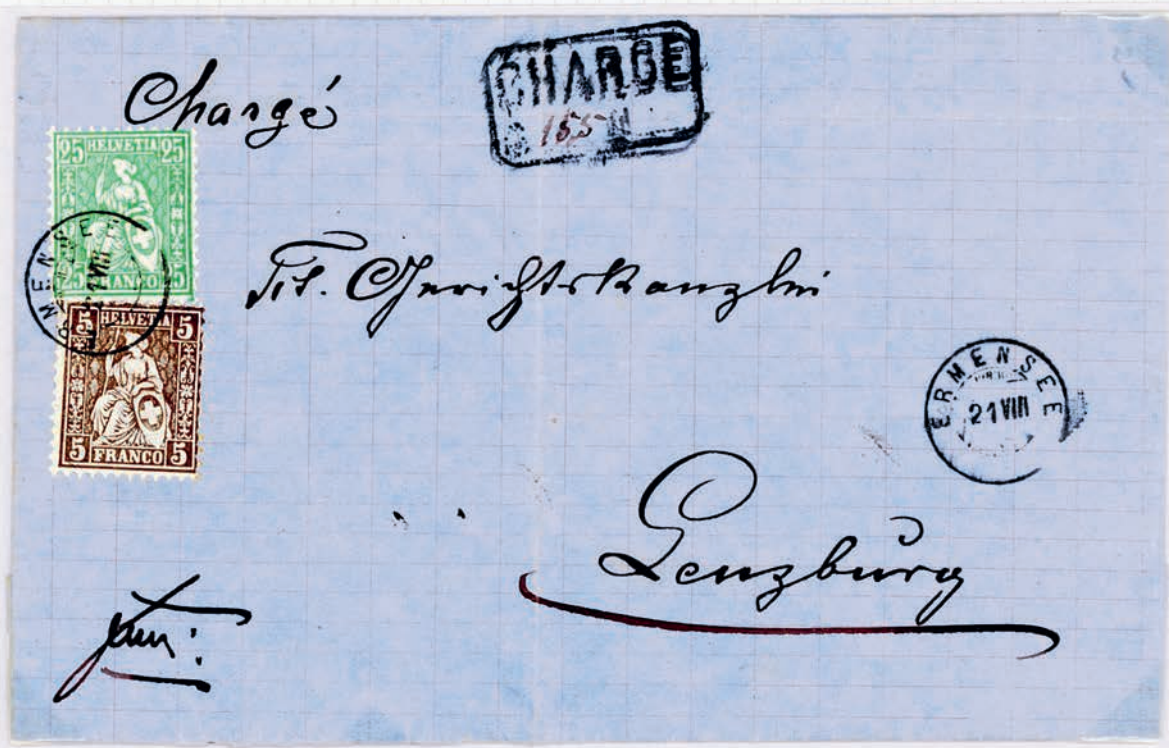 Chargé
CHARGE
155
25 HELVETIA 25
25 FRANCO 25
ERMENSEE
21 VIII
5 HELVETIA 5
5 FRANCO 5
Tit. Gerichtskanzlei
ERMENSEE
21 VIII
Lenzburg